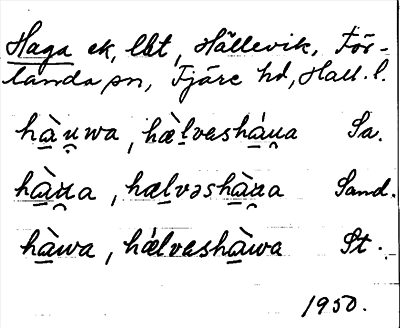 Haga ek, lbt, Hällevik, För-
landa sn, Fjäre hd, Hall. l.
hà̱u̯wa, hæ̀lveshá̱u̯a Sa.
hà̱u̯a, hælvəshà̱u̯a Sand.
hà̱wa, hǽlveshà̱wa St.
1950.